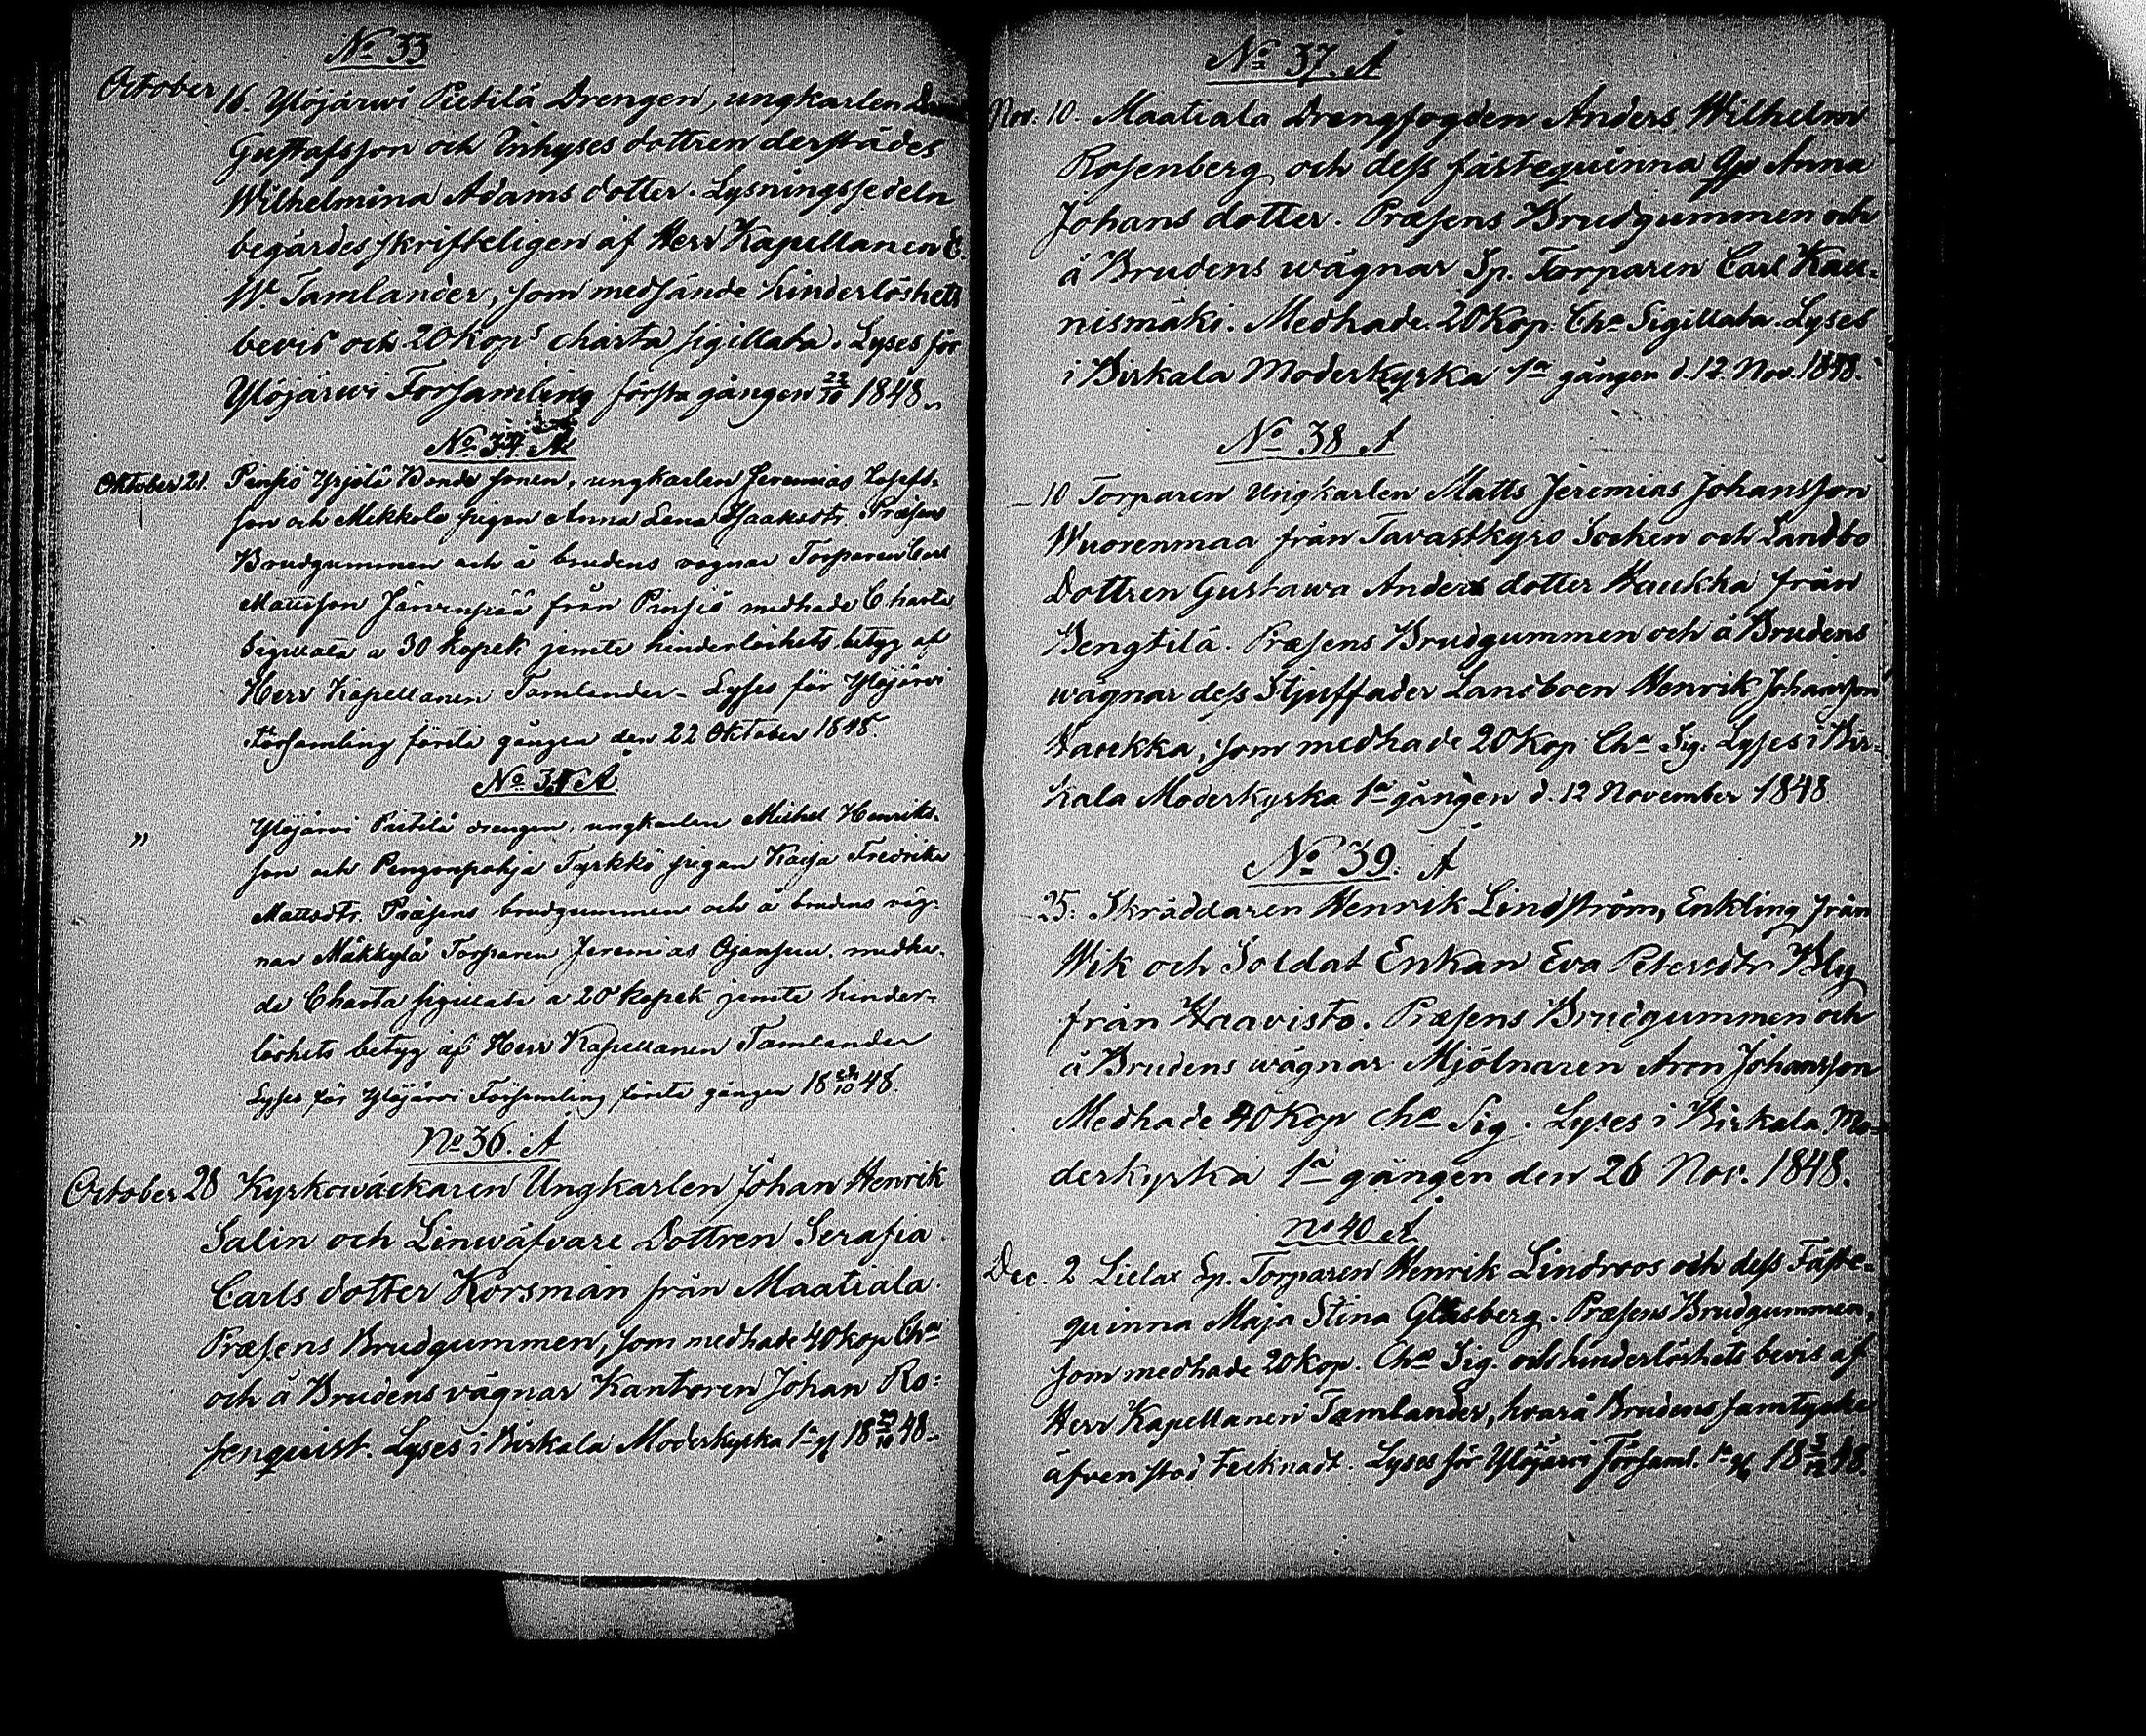 No 33
October 16. Ylöjärwi Pietilä Drengen, ungkarlen
Gustafsson och Inhyses dottren derstädes
Wilhelmina Adams dotter. Lysningssedeln
begärdes skrifteligen af Herr Kapellanen C.
W. Tamlander, som medsände hinderlöshets
bevis och 20 Kops charta sigillata. Lyses för
Ylöjärwi Församling första gången 22/10 1848.
No 34 A
Oktober 21. Pinsiö Yrjölä Bonde sonen, ungkarlen Jeremias Josefs-
son och Mikkola pigan Anna Lena Isaaksdtr. Præsens
Brudgummen och å brudens vägnar Torparen Carl
Mattsson Järvenpää från Pinsiö medhade Charta
Sigillata a 30 kopek jemte hinderlöshets betyg af
Herr Kapellanen Tamlander - Lyses för Ylöjärvi
Församling första gången den 22 Oktober 1848.
No 35 A
" Ylöjärvi Pietilä drengen, ungkarlen Michel Henriks-
son och Pengonpohja Tyrkkö pigan Kaisa Fredrika
Mattsdtr. Præsens brudgummen och å brudens väg-
nar Mäkkylä Torparen Jeremias Ojansuu, medha-
de Charta sigillata a 20 kopek jemte hinder-
löshets betyg af Herr Kapellanen Tamlander
Lyses för Ylöjärvi Församling första gången 18 22/10 48.
No 36. A
October 28 Kyrkowäckaren Ungkarlen Johan Henrik
Salin och Linwäfvare Dottren Serafia
Carls dotter Korsman från Maatiala.
Præsens Brudgummen, som medhade 40 kop Cha
och å Brudens vägnar Kantoren Johan Ro-
senquist. Lyses i Birkala Moderkyrka 1a g 18 29/10 48.
No 37. A
Nov. 10. Maatiala Drengfogden Anders Wilhelm
Rosenberg och dess fästequinna Anna
Johans dotter. Præsens Brudgummen och
å Brudens wägnar Sp. Torparen Carl Kau-
nismäki. Medhade 20 Kop. Cha Sigillata. Lyses
i Birkala Moderkyrka 1a gången d. 12 Nov. 1848.
No 38 A
- 10 Torparen Ungkarlen Matts Jeremias Johansson
Wuorenmaa från Tavastkyro Socken och Landbo
Dottren Gustawa Anders dotter Haukka från
Bengtilä. Præsens Brudgummen och å Brudens
wägnar dess Stjuffader Landboen Henrik Johansson
Haukka, som medhade 20 Kop Cha Sig. Lyses i Bir-
kala Moderkyrka 1a gången d. 12 November 1848
No 39. A
- 25: Skräddaren Henrik Lindström, Enkling från
Wik och Soldat Enkan Eva Petersdtr Bly
från Haavisto. Præsens Brudgummen och
å Brudens wägnar Mjölnaren Aron Johansson
Medhade 40 Kop Cha Sig. Lyses i Birkala Mo-
derkyrka 1a gången den 26 Nov. 1848.
No 40 A
Dec. 2 Lielax Sp. Torparen Henrik Lindroos och dess Fäste-
quinna Maja Stina Glasberg. Præsens Brudgummen,
som medhade 20 kop. Cha Sig. och hinderlöshets bevis af
Herr Kapellanen Tamlander, hvarå Brudens samtycke
äfven stod tecknadt. Lyses för Ylöjärvi Församl. 1a g 18 3/12 48.